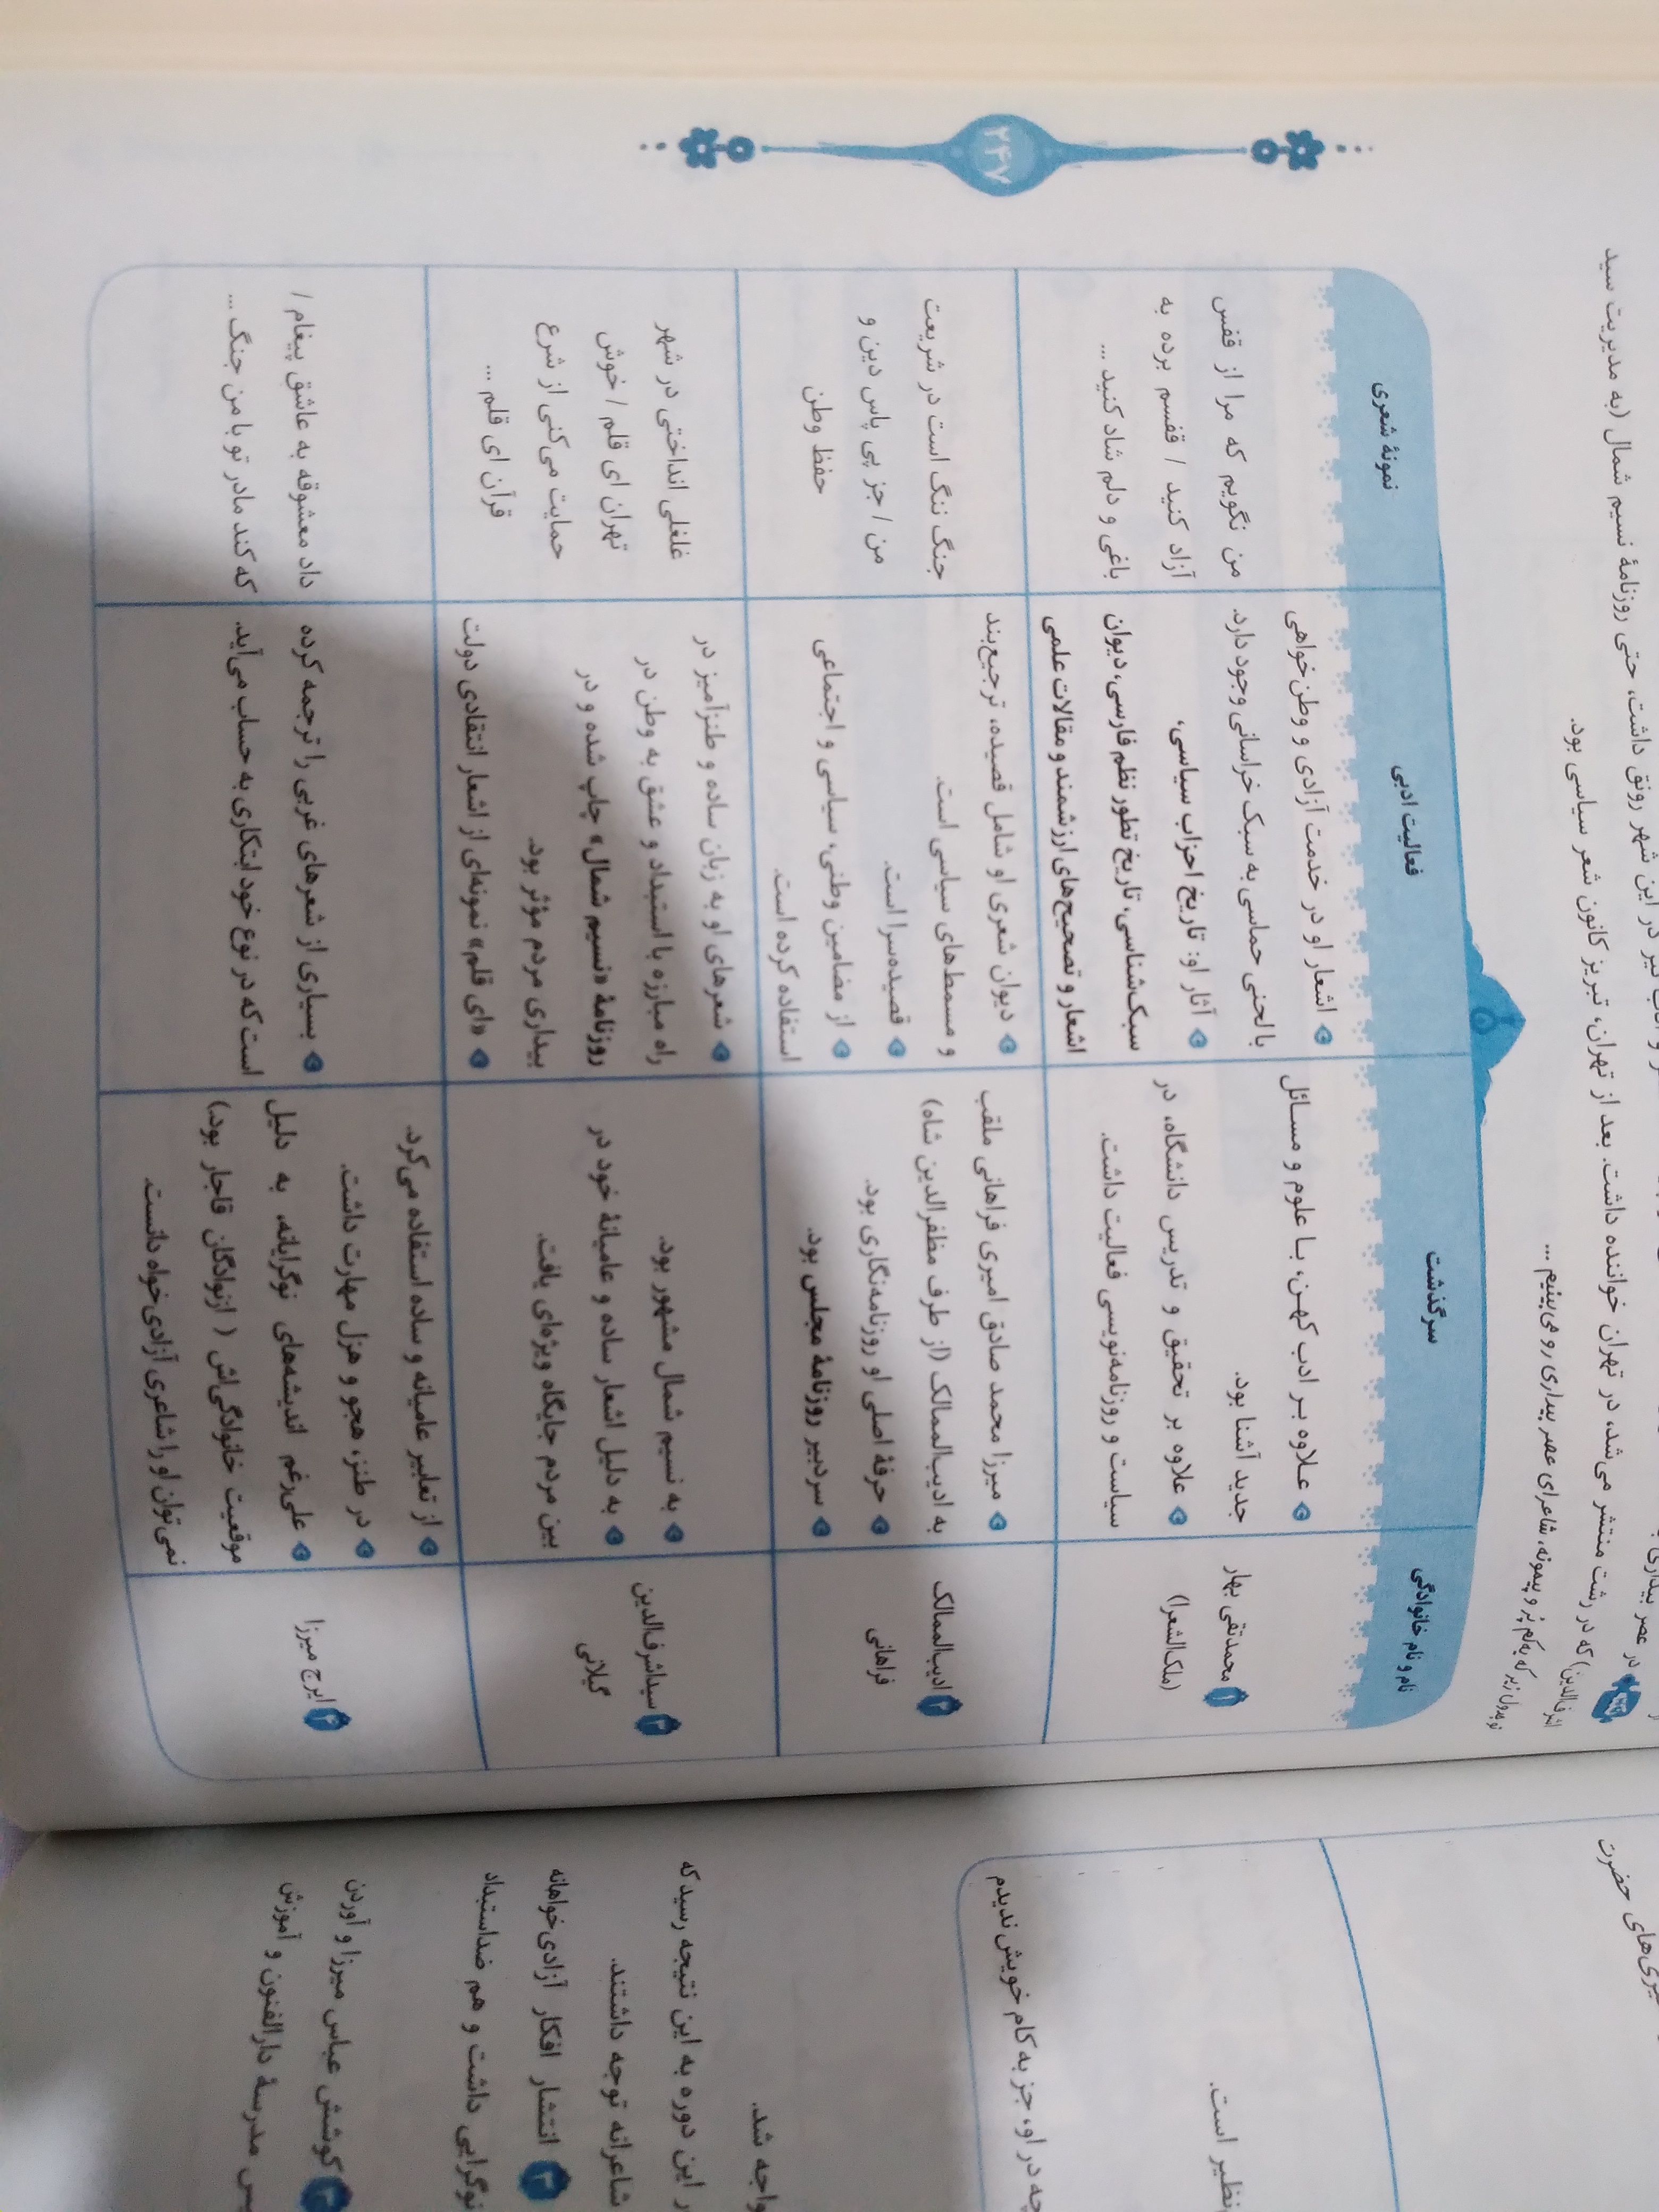 در عصر بیداری
اشرف‌الدین) که در رشت منتشر می‌شد، در تهران خواننده داشت. بعد از تهران، تبریز کانون شعر سیاسی بود.
تو جدول زیر که یه کم پُر و پیمونه، شاعرای عصر بیداری رو می‌بینیم ...
در این شهر رونق داشت، حتی روزنامهٔ نسیم شمال (به مدیریت سید
نام و نام خانوادگی
سرگذشت
فعالیت ادبی
نمونهٔ شعری
۱ محمدتقی بهار
(ملک‌الشعرا)
علاوه بر ادب کهن، با علوم و مسائل
جدید آشنا بود.
علاوه بر تحقیق و تدریس دانشگاه، در
سیاست و روزنامه‌نویسی فعالیت داشت.
اشعار او در خدمت آزادی و وطن‌خواهی
با لحنی حماسی به سبک خراسانی وجود دارد.
آثار او: تاریخ احزاب سیاسی،
سبک‌شناسی، تاریخ تطور نظم فارسی، دیوان
اشعار و تصحیح‌های ارزشمند و مقالات علمی
من نگویم که مرا از قفس
آزاد کنید / قفسم برده به
باغی و دلم شاد کنید ...
۲ ادیب‌الممالک
فراهانی
میرزا محمد صادق امیری فراهانی ملقب
به ادیب‌الممالک (از طرف مظفرالدین شاه)
حرفهٔ اصلی او روزنامه‌نگاری بود.
سردبیر روزنامهٔ مجلس بود.
دیوان شعری او شامل قصیده، ترجیع‌بند
و مسمط‌های سیاسی است.
قصیده‌سرا است.
از مضامین وطنی، سیاسی و اجتماعی
استفاده کرده است.
جنگ ننگ است در شریعت
من / جز پی پاس دین و
حفظ وطن
۳ سیداشرف‌الدین
گیلانی
به نسیم شمال مشهور بود.
به دلیل اشعار ساده و عامیانهٔ خود در
بین مردم جایگاه ویژه‌ای یافت.
شعرهای او به زبان ساده و طنزآمیز در
راه مبارزه با استبداد و عشق به وطن در
روزنامهٔ «نسیم شمال» چاپ شده و در
بیداری مردم مؤثر بود.
«ای قلم» نمونه‌ای از اشعار انتقادی دولت
غلغلی انداختی در شهر
تهران ای قلم / خوش
حمایت می‌کنی از شرع
قرآن ای قلم ...
۴ ایرج میرزا
از تعابیر عامیانه و ساده استفاده می‌کرد.
در طنز، هجو و هزل مهارت داشت.
علی‌رغم اندیشه‌های نوگرایانه، به دلیل
موقعیت خانوادگی‌اش ( از نوادگان قاجار بود)
نمی‌توان او را شاعری آزادی‌خواه دانست.
بسیاری از شعرهای غربی را ترجمه کرده
است که در نوع خود ابتکاری به حساب می‌آید.
داد معشوقه به عاشق پیغام /
که کند مادر تو با من جنگ ...
۲۴۷
حضرت
است.
در او، جز به کام خویش ندیدم
شد.
این دوره به این نتیجه رسید که
شاعرانه توجه داشتند.
۳ انتشار افکار آزادی‌خواهانه
نوگرایی داشت و هم ضداستبداد
کوشش عباس میرزا و آوردن
مدرسهٔ دارالفنون و آموزش